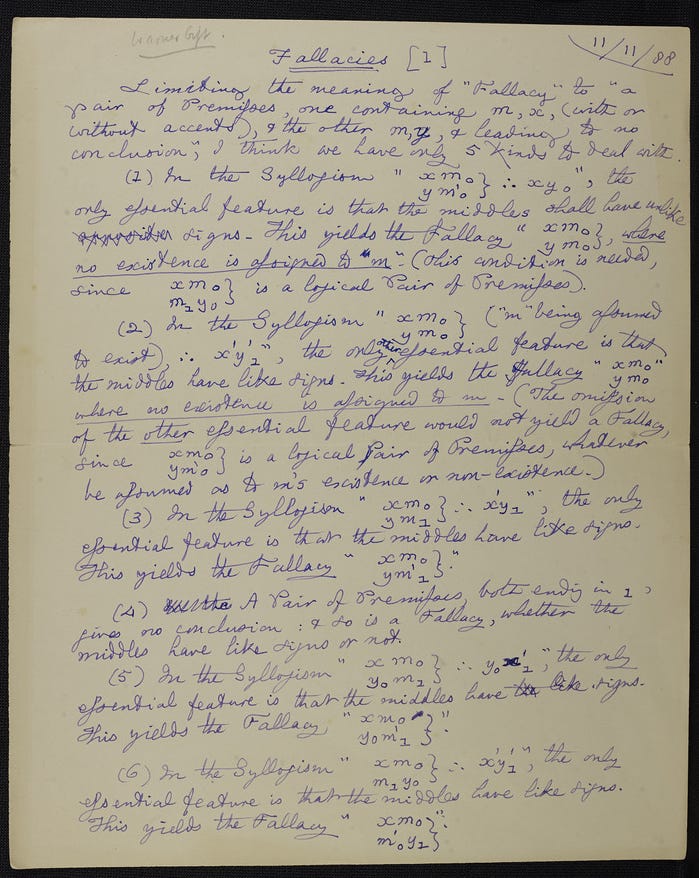 Fallacies [1]
11/11/88
Limiting the meaning of "Fallacy" to "a
pair of Premisses, one containing m, x, (with or
without accents), & the other m, y, & leading to no
conclusion", I think we have only 5 kinds to deal with.
(1) In the Syllogism " xm₀ } ∴ xy₀", the
ym'₀
only essential feature is that the middles shall have unlike
opposite signs. This yields the Fallacy " xm₀ }, where
ym₀
no existence is assigned to "m". (This condition is needed,
since xm₀ } is a logical Pair of Premisses).
m₁y₀
(2) In the Syllogism " xm₀ } ("m" being assumed
ym₀
to exist), ∴ x'y'₁", the only other essential feature is that
the middles have like signs. This yields the Fallacy " xm₀ "
ym₀
where no existence is assigned to m. (The omission
of the other essential feature would not yield a Fallacy,
since xm₀ } is a logical Pair of Premisses, whatever
ym'₀
be assumed as to m's existence or non-existence.)
(3) In the Syllogism " xm₀ } ∴ x'y₁", the only
ym₁
essential feature is that the middles have like signs.
This yields the Fallacy " xm₀ }".
ym'₁
(4) A Pair of Premisses, both endig in 1,
gives no conclusion: & so is a Fallacy, whether the
middles have like signs or not.
(5) In the Syllogism " xm₀ } ∴ y₀x'₁", the only
y₀m₁
essential feature is that the middles have like signs.
This yields the Fallacy " xm₀ }".
y₀m'₁
(6) In the Syllogism " xm₀ } ∴ x'y'₁", the only
m₁y₀
essential feature is that the middles have like signs.
This yields the Fallacy " xm₀ }".
m'₀y₁